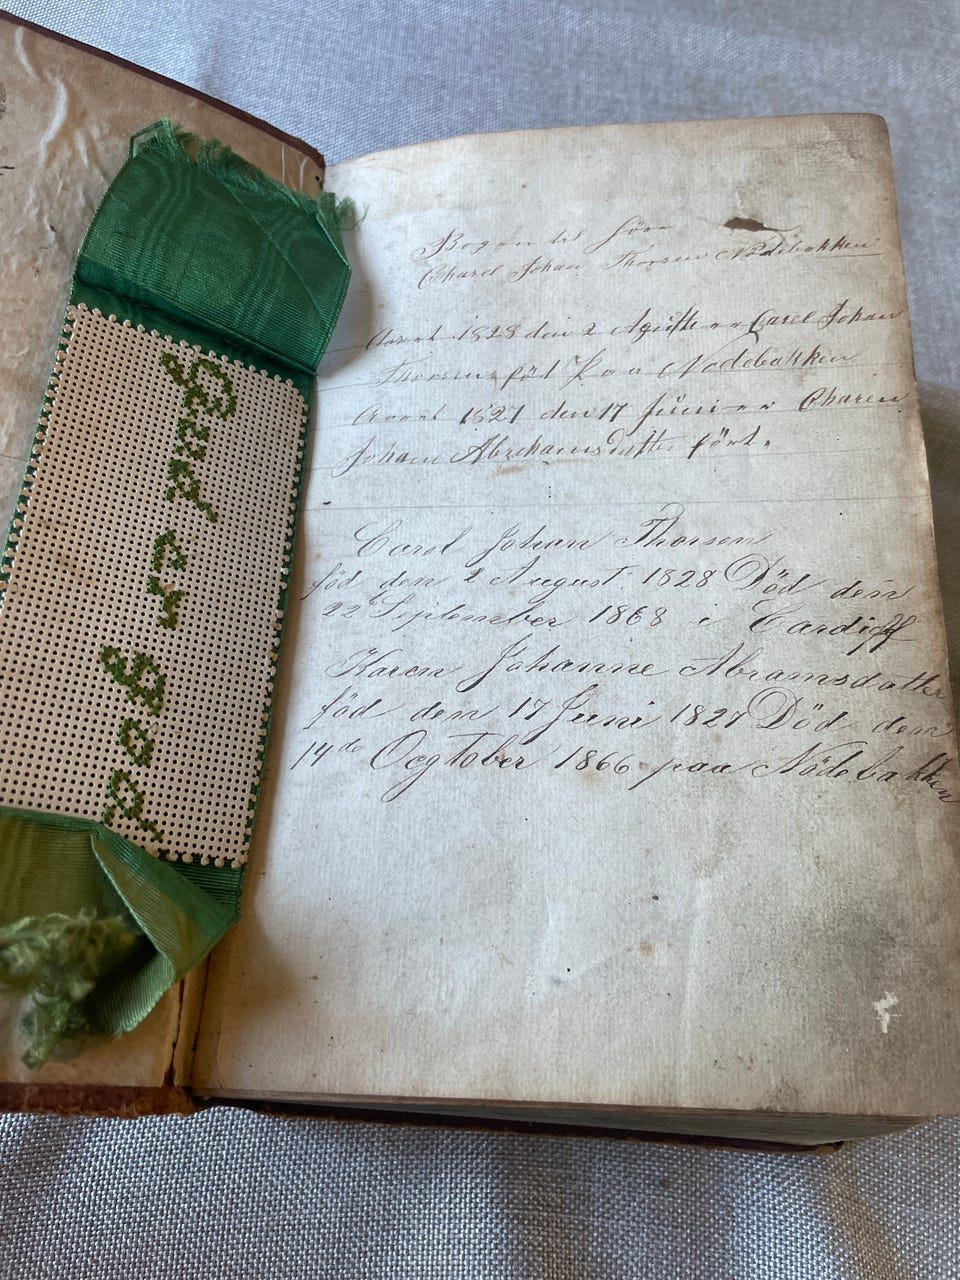 Gud er god
Bogen til hörer
Charel Johan Thorsen Nödebakken
Aaret 1828 den 2 Agust er Carel Johan
Thorsen föt Paa Nödebakken
Aaret 1827 den 17 Juni er Charen
Johane Abrehamsdatter fört.
Carel Johan Thorsen
föd den 2 August 1828 Död den
22 September 1868 i Cardiff
Karen Johanne Abramsdatter
föd den 17 Juni 1827 Död den
14de Ocgtober 1866 paa Nödebakken